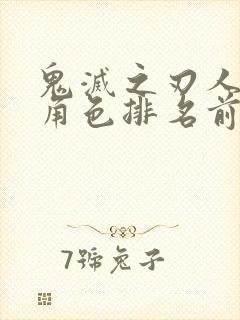 鬼滅之刃人
角色排名前
7號兔子